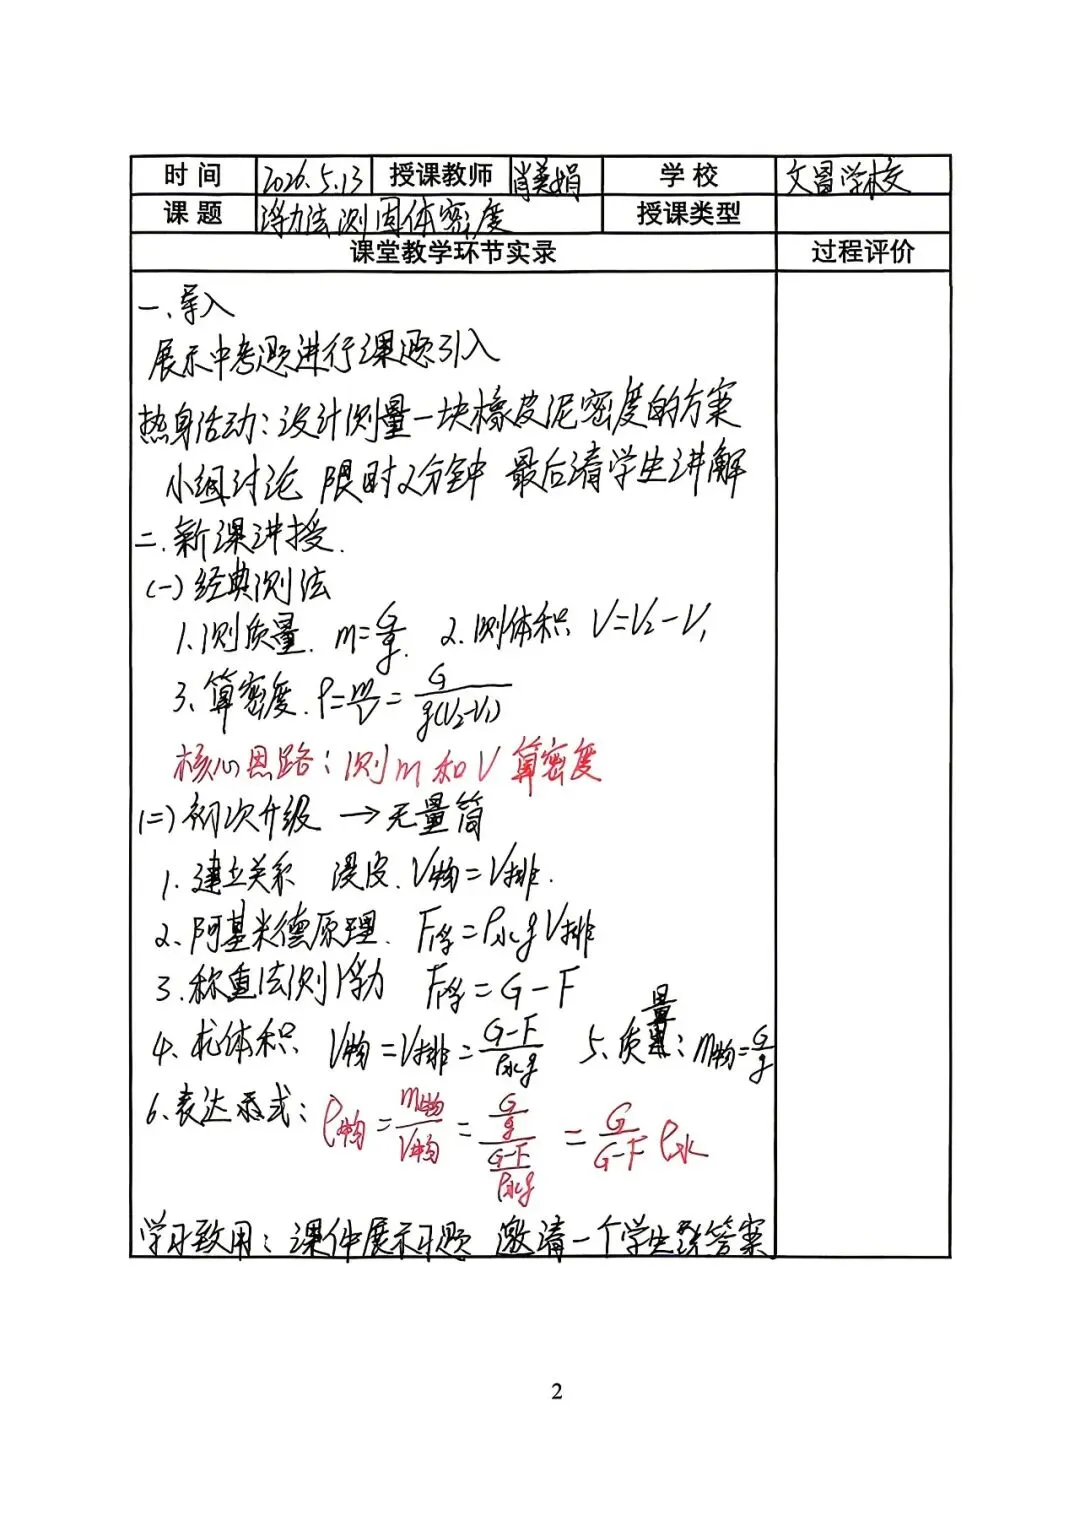 时间 2026.5.13 授课教师 肖美娟 学校 文昌学校
课题 浮力法测固体密度 授课类型
课堂教学环节实录 过程评价
一、导入
展示中考题进行课题引入
热身活动：设计测量一块橡皮泥密度的方案
小组讨论 限时2分钟 最后请学生讲解
二.新课讲授.
(一)经典测法
1.测质量. m=G/g. 2.测体积 V=V₂-V₁
3、算密度. ρ=m/V=G/g(V₂-V₁)
核心思路：测m和V算密度
(二)初次升级 →无量筒
1.建立关系 浸没.V物=V排.
2、阿基米德原理. F浮=ρ水gV排
3.称重法测浮力 F浮=G-F
4、求体积 V物=V排=G-F/ρ水g 5、质量：m物=G/g
6、表达式：ρ物=m物/V物=G/g/G-F/ρ水g=G/G-F ρ水
学习致用：课件展示习题 邀请一个学生答案
2